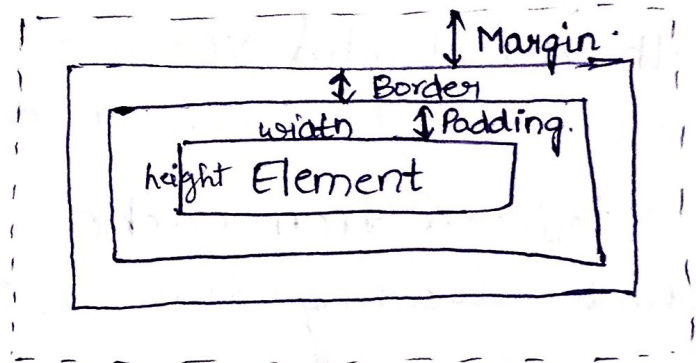 Margin.
Border
width Padding.
height Element